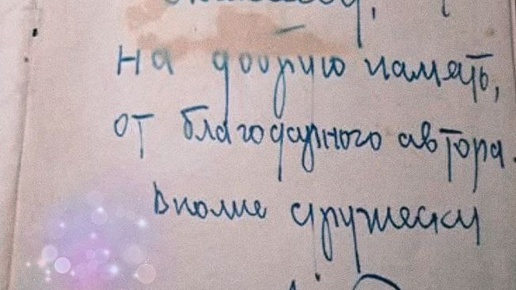 на добрую память,
от благодарного автора.
Вполне дружески